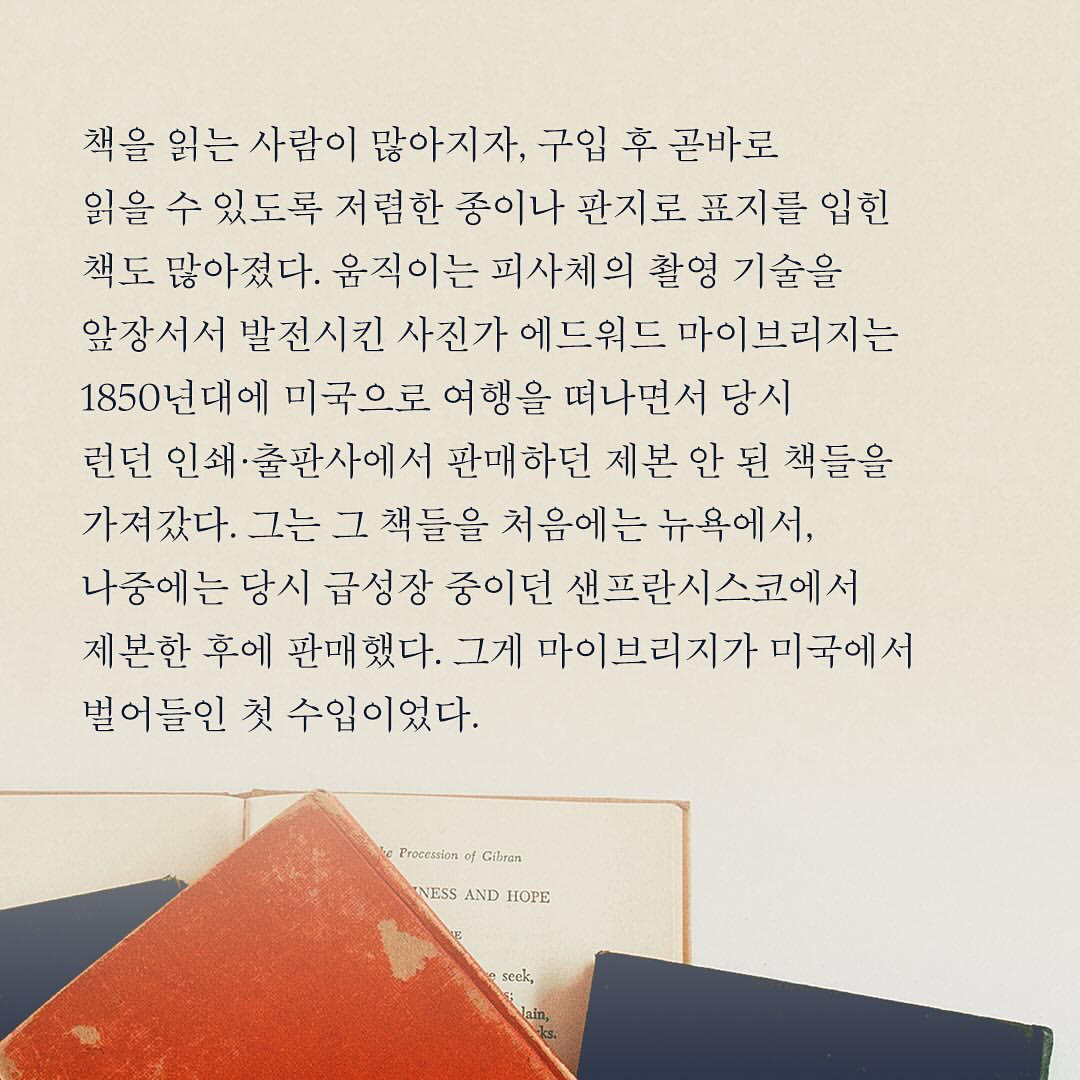 책을 읽는 사람이 많아지자, 구입 후 곧바로
읽을 수 있도록 저렴한 종이나 판지로 표지를 입힌
책도 많아졌다. 움직이는 피사체의 촬영 기술을
앞장서서 발전시킨 사진가 에드워드 마이브리지는
1850년대에 미국으로 여행을 떠나면서 당시
런던 인쇄·출판사에서 판매하던 제본 안 된 책들을
가져갔다. 그는 그 책들을 처음에는 뉴욕에서,
나중에는 당시 급성장 중이던 샌프란시스코에서
제본한 후에 판매했다. 그게 마이브리지가 미국에서
벌어들인 첫 수입이었다.
Procession of Gibran
AND HOPE
seek,